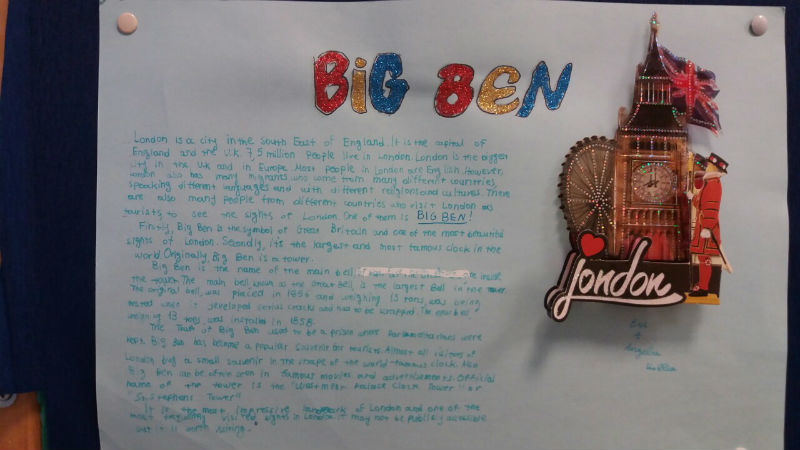 BiG BEN
London is a city in the South East of England. It is the capital of
England and the U.K. 7,5 million People live in London. London is the biggest
city in the U.K and in Europe. Most people in London are English. However,
London also has many migrants who come from many different countries,
speaking different languages and with different religions and cultures. There
are also many people from different countries who visit London as
tourists to see the sights of London. One of them is BIG BEN!
Firstly, Big Ben is the symbol of Great Britain and one of the most beautiful
sights of London. Secondly, it's the largest and most famous clock in the
world. Originally, Big Ben is a tower.
Big Ben is the name of the main bell inside
the tower. The main bell, known as the Great Bell, is the largest Bell in the tower.
The original bell, was placed in 1856 and weighing 15 tons, was being
tested when it developed serial cracks and had to be
weighing 13 tons was installed in 1858.
The Tower of Big Ben used to be a prison where were
kept. Big Ben has become a popular souvenir for tourists. Almost all visitors of
London buy a small souvenir in the shape of the world-famous clock. Also
Big Ben can be often seen in famous movies and advertisements. Official
name of the tower is the Clock Tower" or
"St. Stephens Tower"
It is the most impressive landmark of London and one of the
most frequently visited sights in London. It may not be publicly accessible
but it is worth seeing.
London